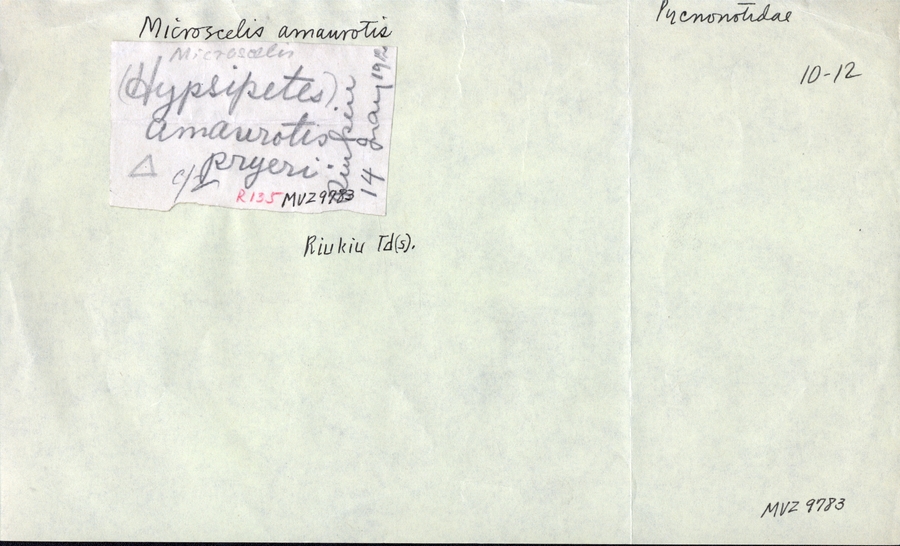 Microscelis amaurotis
Pycnonotidae
10-12
Microscelis
(Hypsipetes)
amaurotis
pryeri.
△ c/2
R135 MVZ 9783
Riukiu
14 May
Riukiu Id(s).
MVZ 9783